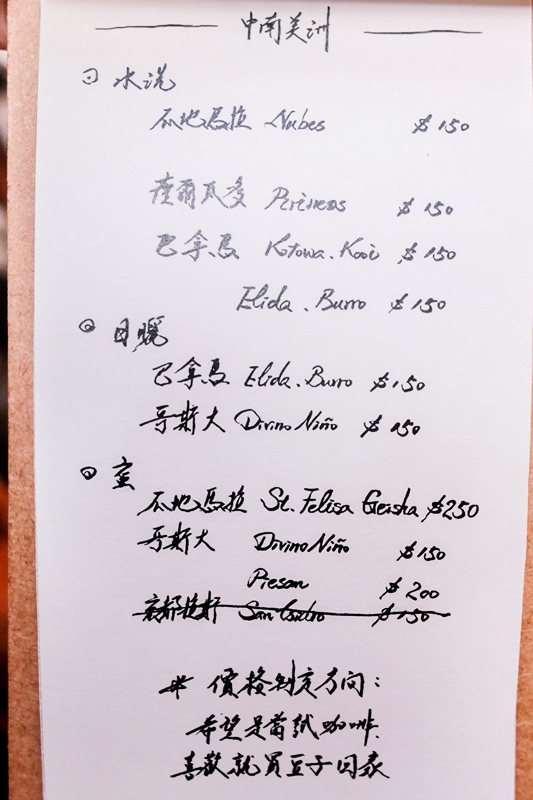 中南美洲
水洗
瓜地馬拉 Nubes $150
薩爾瓦多 Pirineos $150
巴拿馬 Kotowa.Kooi $150
Elida.Burro $150
日曬
巴拿馬 Elida.Burro $150
哥斯大 Divino Niño $150
蜜
瓜地馬拉 St. Felisa Geisha $250
哥斯大 Divino Niño $150
$200
宏都拉斯 San Isidro $150
* 價格制定方向:
希望是當試咖啡
喜歡就買豆子回家